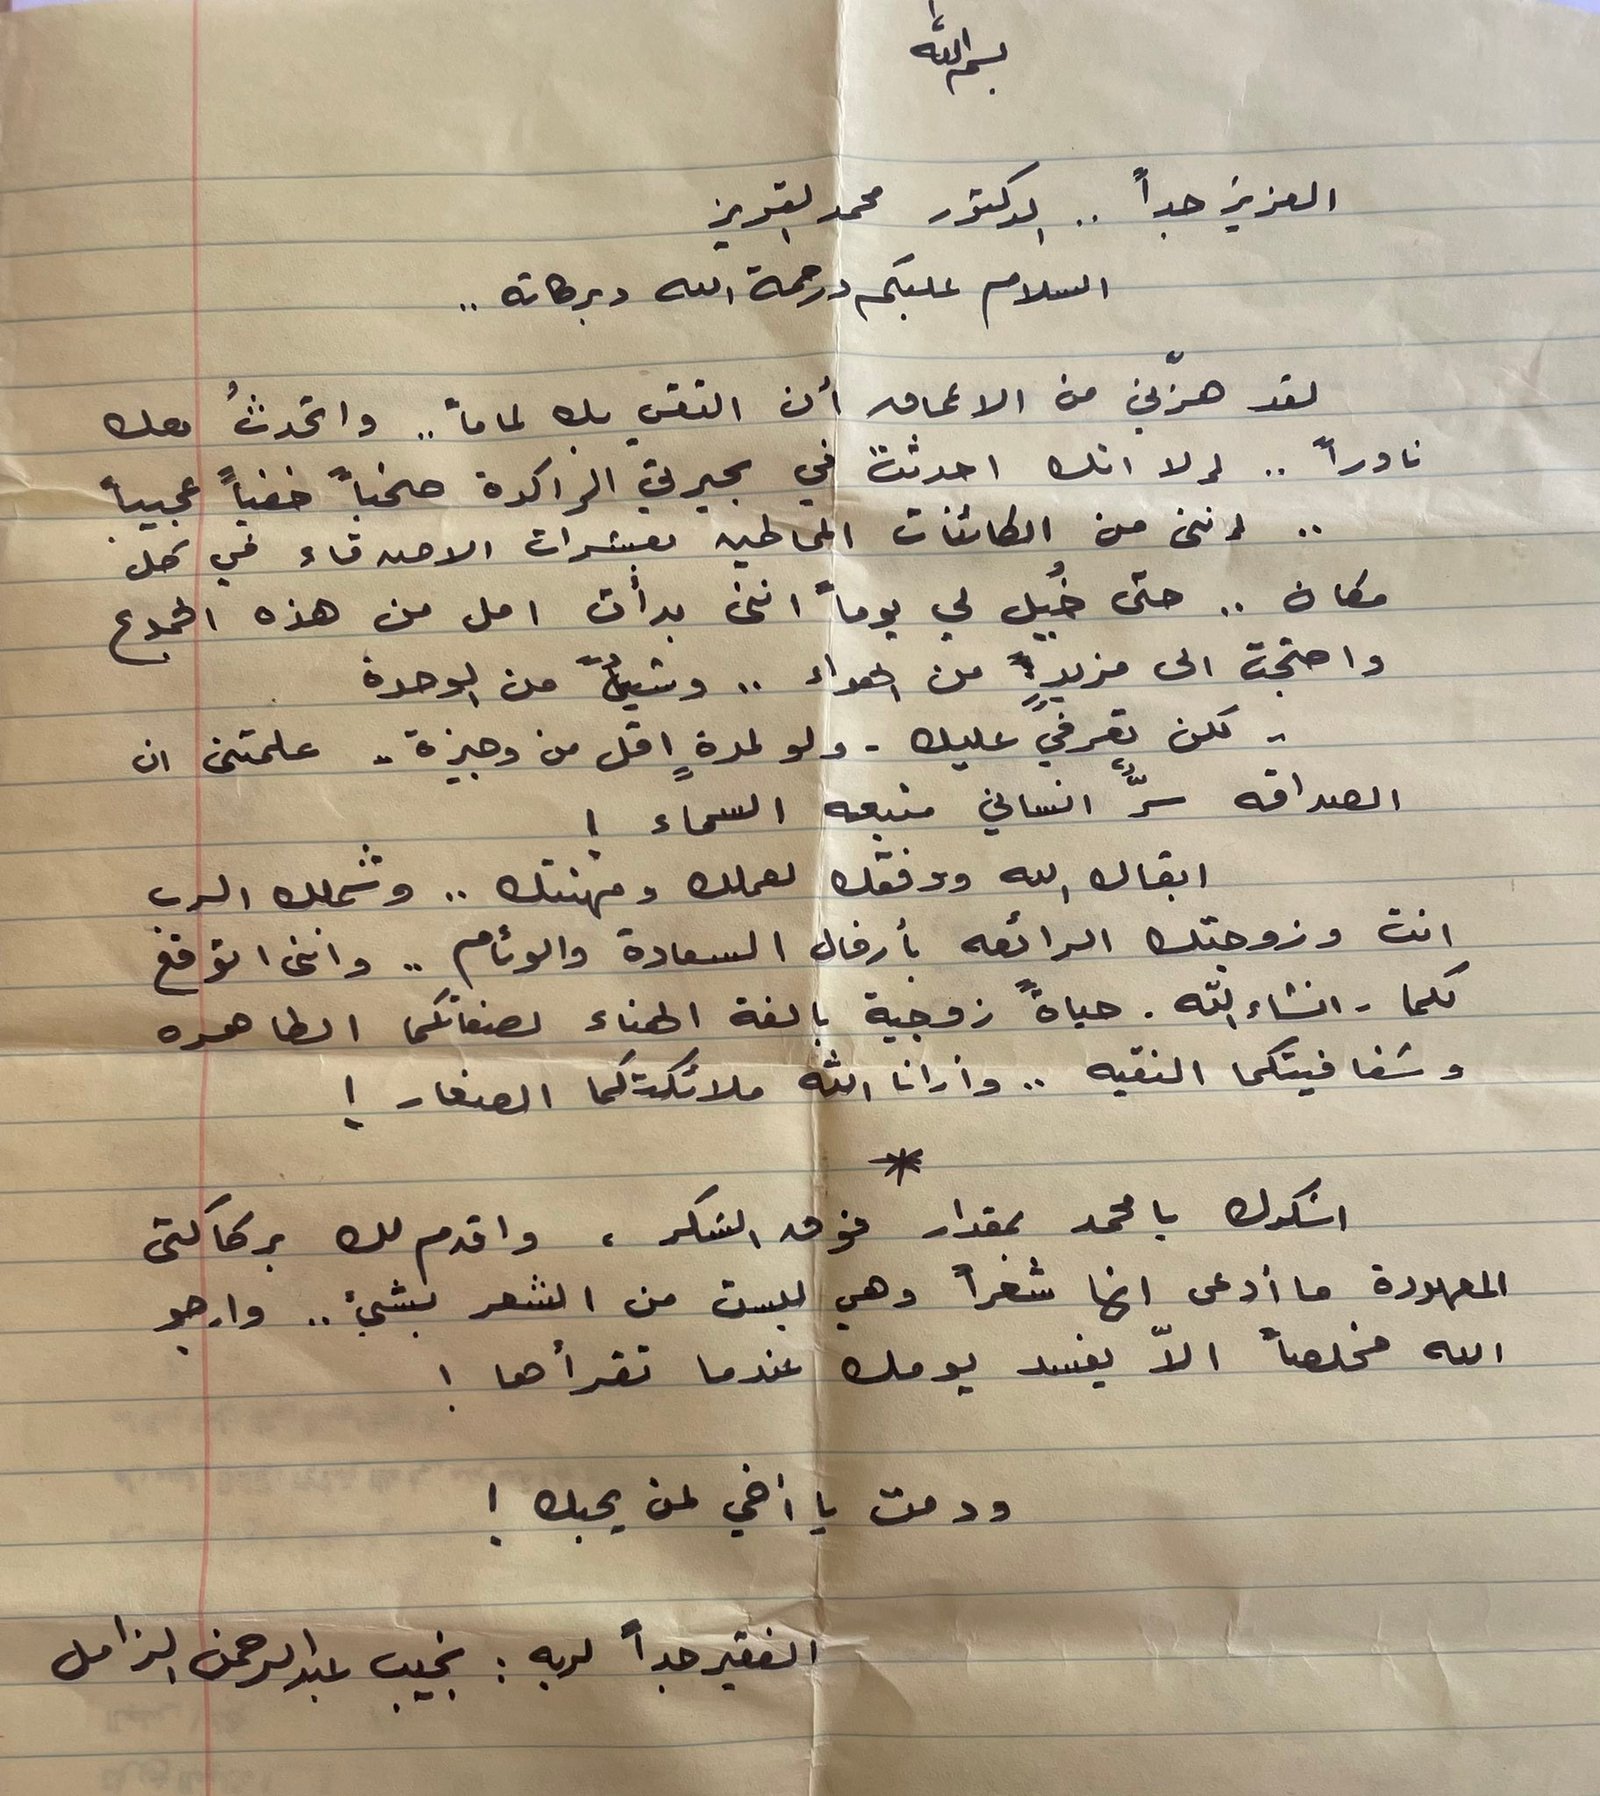 بسم الله
العزيز جداً .. الدكتور محمد القويز
السلام عليكم ورحمة الله وبركاته ..
لقد هزّني من الاعماق أن التقي بك لماماً .. واتحدثُ معك
نادراً .. لولا انك احدثت في بحيرتي الراكدة صخباً خفياً عجيباً
.. لانني من الكائنات المحاطين بعشرات الاصدقاء في كل
مكان .. حتى خُيل لي يوماً انني بدأت امل من هذه الجموع
واحتجت الى مزيدٍ من الهواء .. وشيءٌ من الوحدة
.. لكن تعرفي عليك - ولو لمدةٍ اقل من وجيزة .. علمتني ان
الصداقه سرٌّ انساني منبعه السماء !
ابقاك الله ووفقك لعملك ومهنتك .. وشملك الرب
انت وزوجتك الرائعه بأرفال السعادة والوئام .. وانني اتوقع
لكما - انشاء الله - حياةً زوجية بالغة الهناء لصفاتكما الطاهره
وشفافيتكما النقيه .. وأرانا الله ملائكتكما الصغار !
*
اشكرك يا محمد بمقدار فوق الشكر ، واقدم لك بركاكتي
المعهودة ما أدعى انها شعراً وهي ليست من الشعر بشيئ .. وارجو
الله مخلصاً الاّ يفسد يومك عندما تقرأها !
ودمت يا أخي لمن يحبك !
الفقير جداً لربه : نجيب عبدالرحمن الزامل